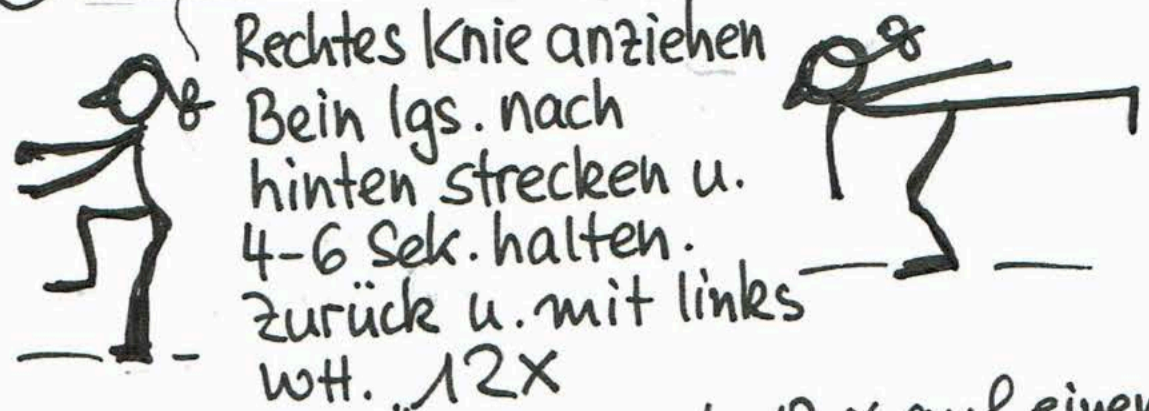 Rechtes Knie anziehen
Bein lgs. nach
hinten strecken u.
4-6 Sek. halten.
zurück u. mit links
WH. 12x
auf einen